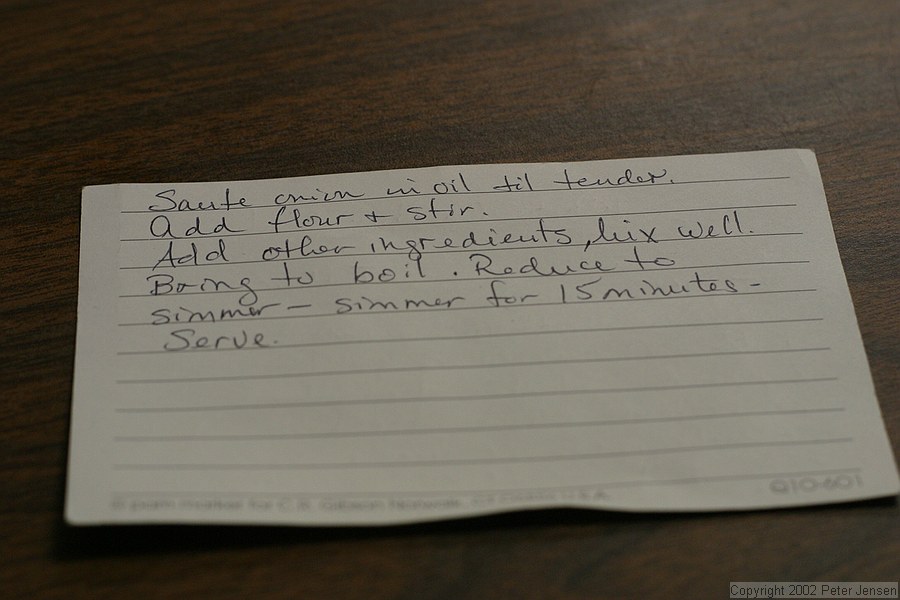 Saute onion in oil til tender.
Add flour + stir.
Add other ingredients, mix well.
Bring to boil. Reduce to
simmer – simmer for 15 minutes –
Serve.
Q10-601
Copyright 2002 Peter Jensen